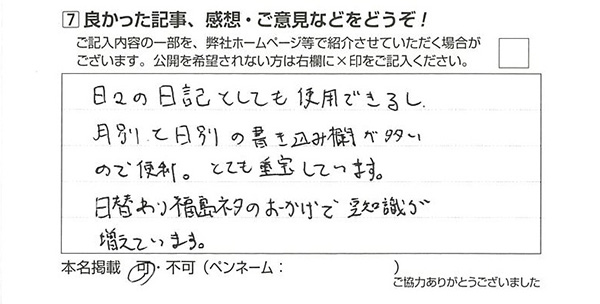 7 良かった記事、感想・ご意見などをどうぞ！
ご記入内容の一部を、弊社ホームページ等で紹介させていただく場合が
ございます。公開を希望されない方は右欄に×印をご記入ください。
日々の日記としても使用できるし、
月別と日別の書き込み欄が多い
ので便利。とても重宝しています。
日替わり福島ネタのおかげで豆知識が
増えています。
本名掲載 可・不可（ペンネーム： ）
ご協力ありがとうございました